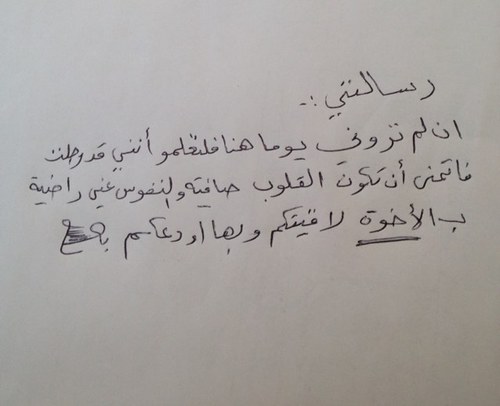 رسالتي :-
ان لم تروني يوما هنا فلتعلمو أنني قد رحلت
فاتمنى أن تكون القلوب صافيته والنفوس عني راضية
ب الأخوة لاقيتكم وبها اودعكم